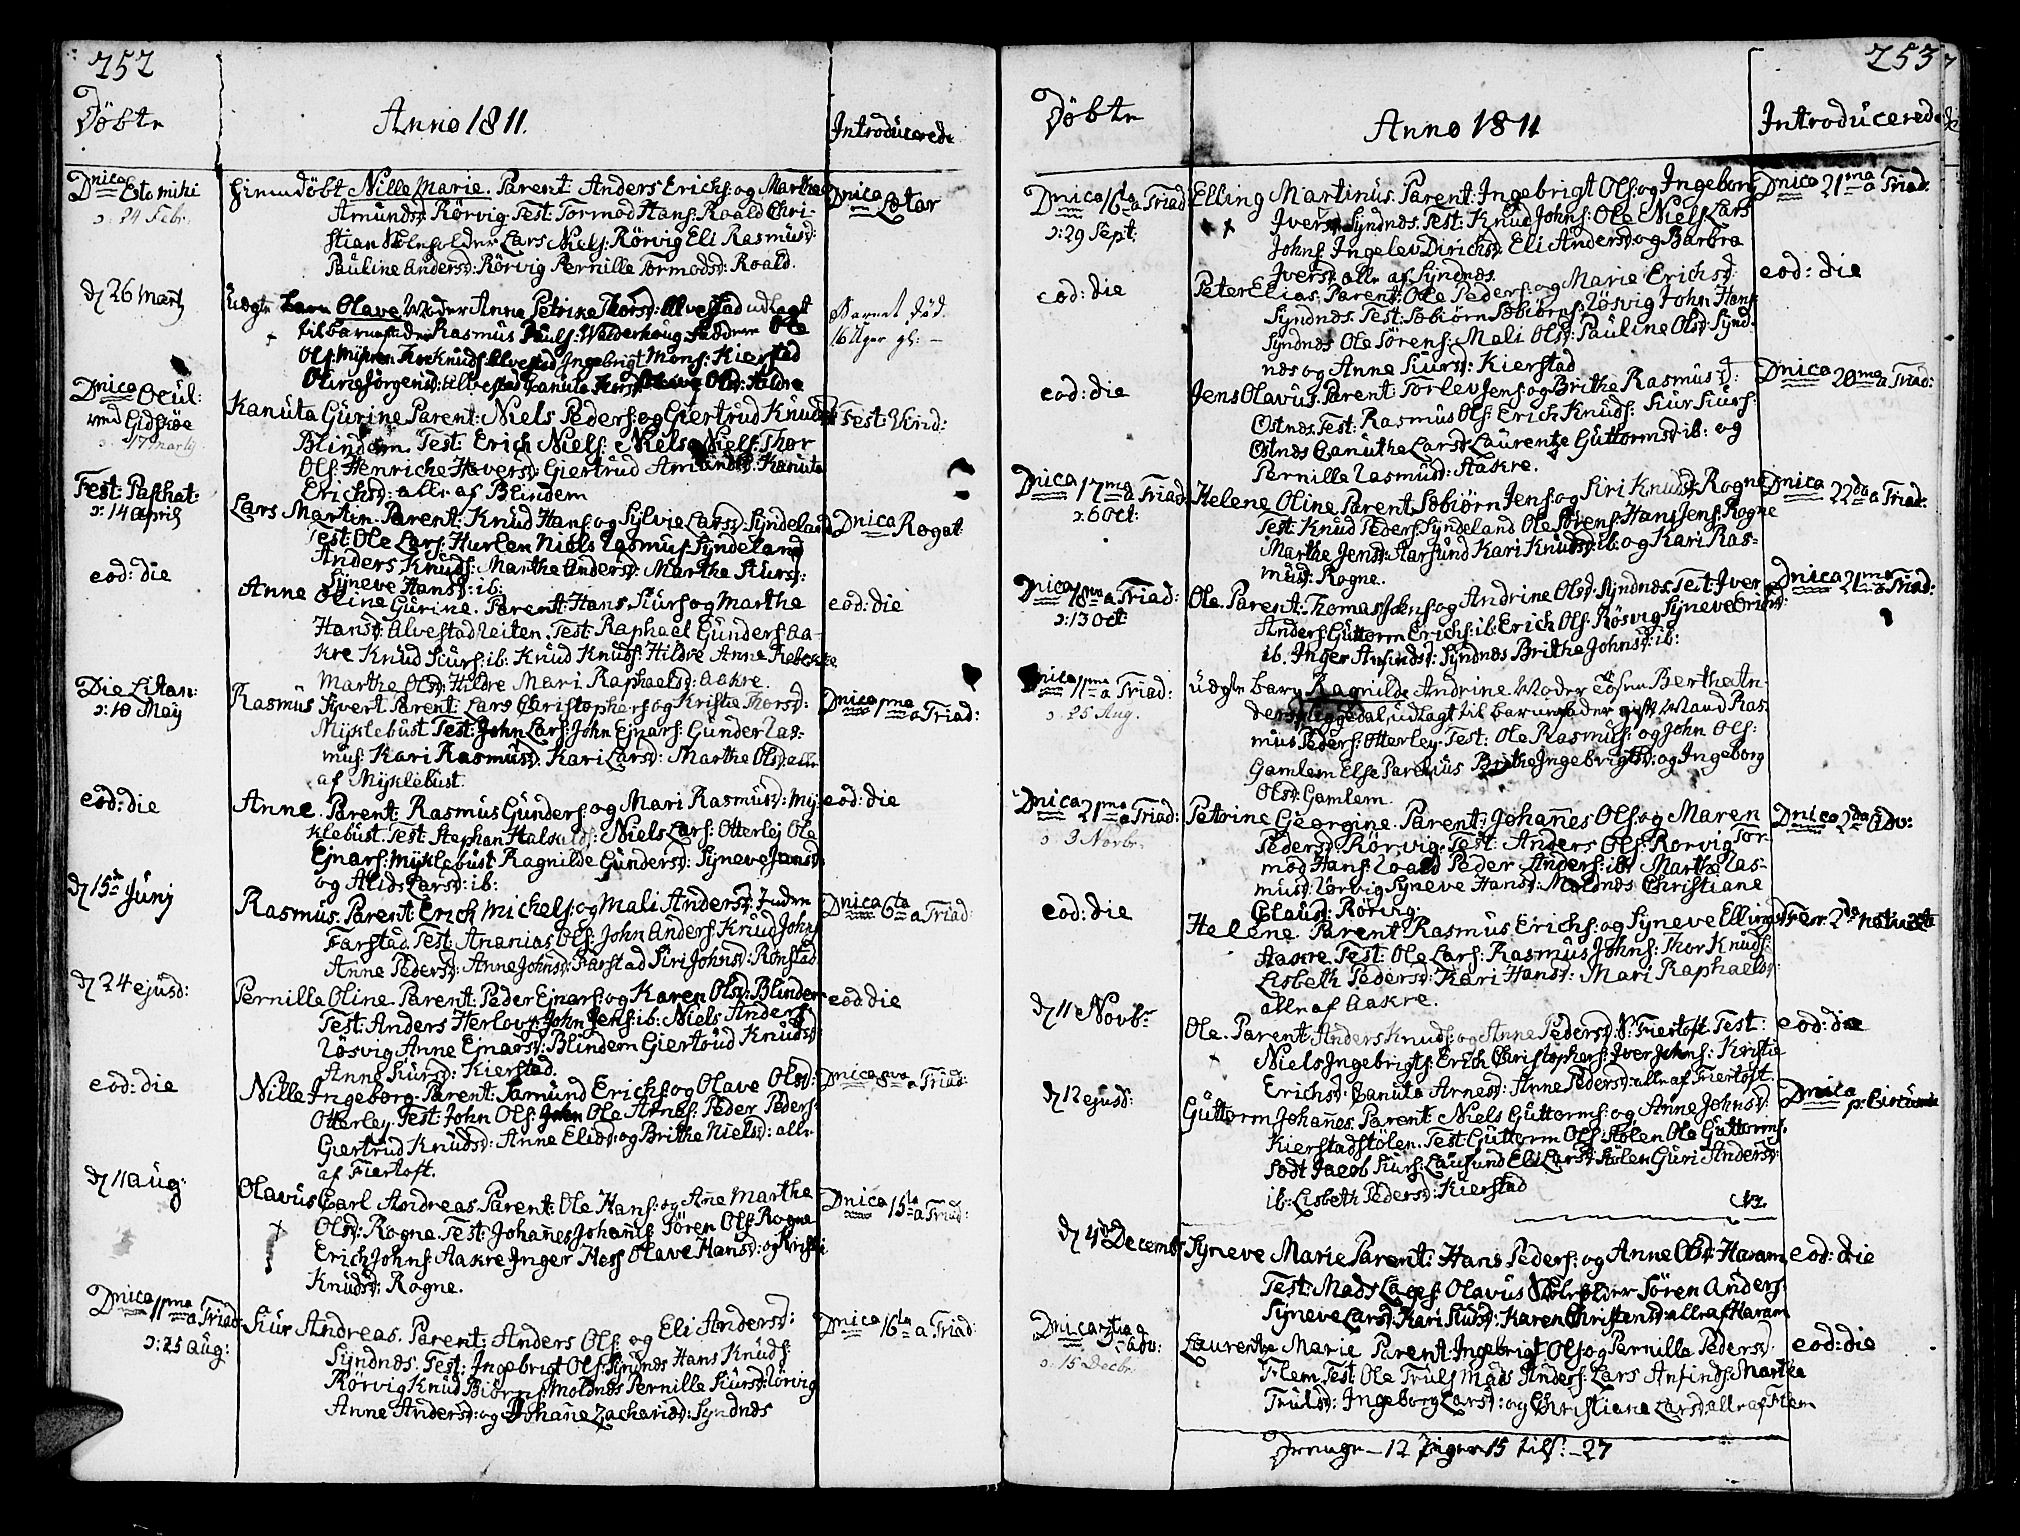 252
Döbte
Anno 1811.
Introducerede
Dnica Esto mihi
ɔ: 24 Febr.
hiemdöbt Nille Marie. Parent: Anders Erichs: og Marthe
Amunds: Rörvig. Test: Tormod Hans: Roald Chri-
stian Lars Niels: Rörvig Eli Rasmusd:
Pauline Andersd: Rörvig Pernille Tormodsd: Roald.
Dnica Lætar
d 26 Martj
uægte barn Olave Moder Anne Petrine Thorsd: Alvestad udlagt
til barnefader Rasmus Pauls: Walderhoug Faddere Ole
Ols: Myren Knuds: Alvestad Ingebrigt Mons: Kierstad
Oline Jörgensd: Alvestad Canuta Olave Olsd: Hildre
Barnet död
16 Uger gl: -
Dnica Ocul:
ved Gidskøe
ɔ: 17 Martj
Kanuta Gurine Parent: Niels Peders: og Giertrud Knudsd:
Blindem. Test: Erich Niels: Niels Niels: Thor
Ols: Henriche Haversd: Giertrud Amundsd: Kanuta
Erichsd: alle af Blindem
Fest: Trid:
Fest: Paschat:
ɔ: 14 April
Lars Martin. Parent: Knud Hans: og Sylvie Larsd: Syndeland
Test: Ole Lars: Hurlen Niels Rasmus: Syndeland
Anders Knuds: Marthe Andersd: Marthe Siursd:
Syneve Hansd: ib:
Dnica Rogat:
eod: die
Anne Oline Gurine. Parent: Hans Siurs: og Marthe
Hansd: Alvestad leiten. Test: Raphael Gunders: Aa-
kre Knud Siurs: ib: Knud Knuds: Hildre Anne Rebekke
Marthe Olsd: Hildre Mari Raphaelsd: Aakre.
eod: die
Die Litan:
ɔ: 10 May
Rasmus Syvert Parent: Lars Christophers: og Kristie Thorsd:
Myklebust Test: John Lars: John Ejnars: Gunder Ras-
mus: Kari Rasmusd: Kari Larsd: Marthe Olsd: alle
af Myklebust.
Dnica 1ma a Triad:
eod: die
Anne. Parent: Rasmus Gunders: og Mari Rasmusd: My-
klebust. Test: Stephan Niels Lars: Otterlej Ole
Ejnars: Myklebust Ragnilde Gundersd: Syneve Jansd:
og Alids Larsd: ib:
eod: die
d 15de Junj
Rasmus. Parent: Erich Michels: og Mali Andersd:
Farstad. Test: Ananias Ols: John Anders: Knud Johns:
Anne Pedersd: Anne Johnsd: Farstad Siri Johnsd: Rönstad
Dnica 6ta a Triad:
d 24 ejusd:
Pernille Oline. Parent: Peder Ejnars: og Karen Olsd: Blindem
Test: Anders Herlov: John Jens: ib: Niels Anders:
Lösvig Anne Ejnarsd: Blindem Giertrud Knudsd:
Anne Siursd: Kierstad.
eod: die
eod: die
Nille Ingeborg. Parent: Samund Erichs: og Olave Olsd:
Otterlej. Test: John Ols: Ole Arnes: Peder Peders:
Giertrud Knudsd: Anne Elisd: og Brithe Nielsd: alle
af Fiertoft.
Dnica 8va a Triad:
d 11 Aug:
Olavus Carl Andreas. Parent: Ole Hans: og Añe Marthe
Olsd: Rogne. Test: Johañes Johañs: Sören Ols: Rogne
Erich Johns: Aakre Inger Hess Olave Hansd: og Kristie
Knudsd: Rogne.
Dnica 15ta a Triad:
Dnica 11ma a Triad:
ɔ: 25 Aug:
Siur Andreas. Parent: Anders Ols: og Eli Andersd:
Syndnæs. Test: Ingebrigt Ols: Syndnæs Hans Knuds:
Rörvig Knud Biörns: Moldnæs Pernille Siursd: Rörvig
Anne Andersd: og Johañe Zachariæd: Syndnæs
Dnica 16ta a Triad:
253
Döbte
Anno 1811
Introducerede
Dnica 16ta a Triad:
ɔ: 29 Sept:
Elling Martinus. Parent: Ingebrigt Ols: og Ingeborg
Iversd: Syndnæs. Test: Knud Johns: Ole Niels: Lars
Johns: Ingelev Dirichsd: Eli Andersd: og Barbra
Iversd: alle af Syndnæs.
Dnica 21ma a Triad:
eod: die
Peter Elias. Parent: Ole Peders: og Marie Erichsd:
Syndnæs. Test: Sæbiörn Sæbiörns: Lösvig John Hans:
Syndnæs Ole Sörens: Mali Olsd: Pauline Olsd: Synd-
næs og Anne Siursd: Kierstad
eod: die
eod: die
Jens Olavus. Parent: Torlev Jens: og Brithe Rasmusd:
Östnæs. Test: Rasmus Ols: Erich Knuds: Siur Siurs:
Östnæs Canuthe Larsd: Laurentze Guttormsd: ib: og
Pernille Rasmusd: Aakre.
Dnica 20ma a Triad:
Dnica 17ma a Triad:
ɔ: 6 Oct:
Helene Oline Parent: Sæbiörn Jens: og Siri Knudsd: Rogne
Test: Knud Peders: Syndeland Ole Sörens: Hans Jens: Rogne
Marthe Jensd: Aarsund Kari Knudsd: ib: og Kari Ras-
musd: Rogne.
Dnica 22da a Triad:
Dnica 18ma a Triad:
ɔ: 13 Oct:
Ole. Parent: Thomas Jens: og Andrine Olsd: Syndnæs. Test: Iver
Anders: Guttorm Erichs: ib: Erich Ols: Rösvig Syneve Erichsd:
ib. Inger Anfindsd: Syndnæs Brithe Johnsd: ib:
Dnica 21ma a Triad:
Dnica 11ma a Triad:
ɔ: 25 Aug.
uægte barn Ragnilde Andrine Moder Tösen Berthe An-
dersd: udlagt til barnefader gift Mand Ras-
mus Peders: Otterlej. Test: Ole Rasmus: og John Ols:
Gamlem Else Parelius Brithe Ingebrigtsd: og Ingeborg
Olsd: Gamlem.
Dnica 21ma a Triad:
ɔ: 3 Novbr.
Petrine Georgine. Parent: Johañes Ols: og Maren
Pedersd: Rörvig. Test: Anders Ols: Rörvig Tor-
mod Hans: Roald Peder Anders: ib: Marthe Ras-
musd: Rörvig Syneve Hansd: Moldnæs Christiane
Clausd: Rörvig.
Dnica 2da Adv:
eod: die
Helene. Parent Rasmus Erichs: og Syneve Ellingsd:
Aakre. Test: Ole Lars: Rasmus Johns: Thor Knuds:
Lisbeth Pedersd: Kari Hansd: Mari Raphaelsd:
alle af Aakre.
Fer: 2da nativit:
d 11 Novbr
Ole. Parent: Anders Knuds: og Anne Pedersd: Fiertoft Test:
Niels Ingebrigts: Erich Christophers: Iver Johns: Kristie
Erichsd: Canuta Arnesd: Anne Pedersd: alle af Fiertoft.
eod: die
d 12 ejusd:
Guttorm Johañes. Parent: Niels Guttorms: og Anne Johnsd:
Kierstadstölen. Test: Guttorm Ols: Stölen Ole Guttorms:
Södt Jacob Siurs: Lausund Eli Larsd: Stölen Guri Andersd:
ib: Lisbeth Pedersd: Kierstad
Dnica p: Circumc:
d 4de Decembr
Syneve Marie Parent: Hans Peders: og Anne Olsd: Haram
Test: Mads Lages: Olavus Sören Anders:
Syneve Larsd: Kari Siursd: Karen Christensd: alle af Haram
eod: die
Dnica 3tia Adv:
ɔ: 15 Decbr.
Laurentze Marie Parent: Ingebrigt Ols: og Pernille Pedersd:
Flem. Test: Ole Truls: Mads Anders: Lars Anfinds: Marthe
Trulsd: Ingeborg Larsd: og Christiane Larsd: alle af Flem
eod: die
Drenge - 12 Piger 15 tils: - 27